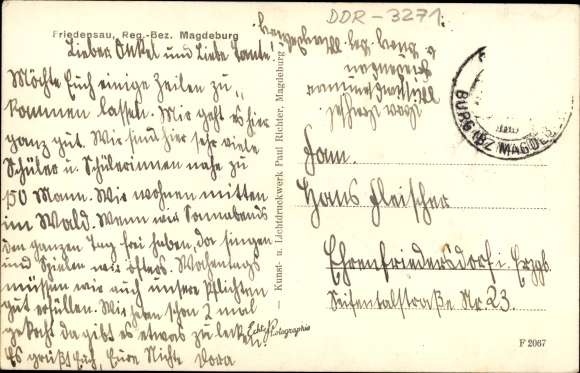 DDR-3271
Friedensau, Reg.-Bez. Magdeburg
Lieber Onkel und liebe Tante!
Möchte Euch einige Zeilen zu
kommen lassen. Mir geht es hier
ganz gut. Wir sind hier sehr viele
Schüler u. Schülerinnen nahe zu
150 Mann. Wir wohnen mitten
im Wald. Wenn wir Sonnabends
den ganzen Tag frei haben, da singen
und Spielen wir öfters. Wochentags
müssen wir auch unsere Pflichten
gut erfüllen. Wir haben schon 2 mal
gekocht da gibt es etwas zu lecken.
Es grüßt Euch, Eure Nichte Dora
Dora Fleischer
Missionsseminar
Friedensau
b. Burg, bez. Magdeburg
Kunst- u. Lichtdruckwerk Paul Richter, Magdeburg
BURG (BZ. MAGDEB
Fam.
Hans Fleischer
Ehrenfriedersdorf i. Erzgb.
Seifentalstraße Nr. 23.
Echte Photographie
F 2067